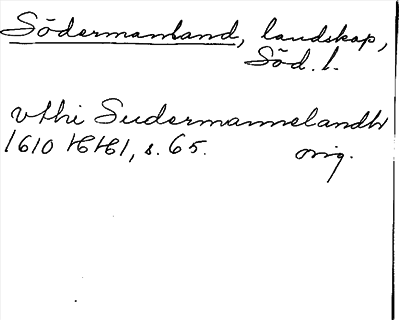 Södermanland, landskap,
Söd. l.
vthi Sudermannelandh
1610 HH1, s. 65. orig.